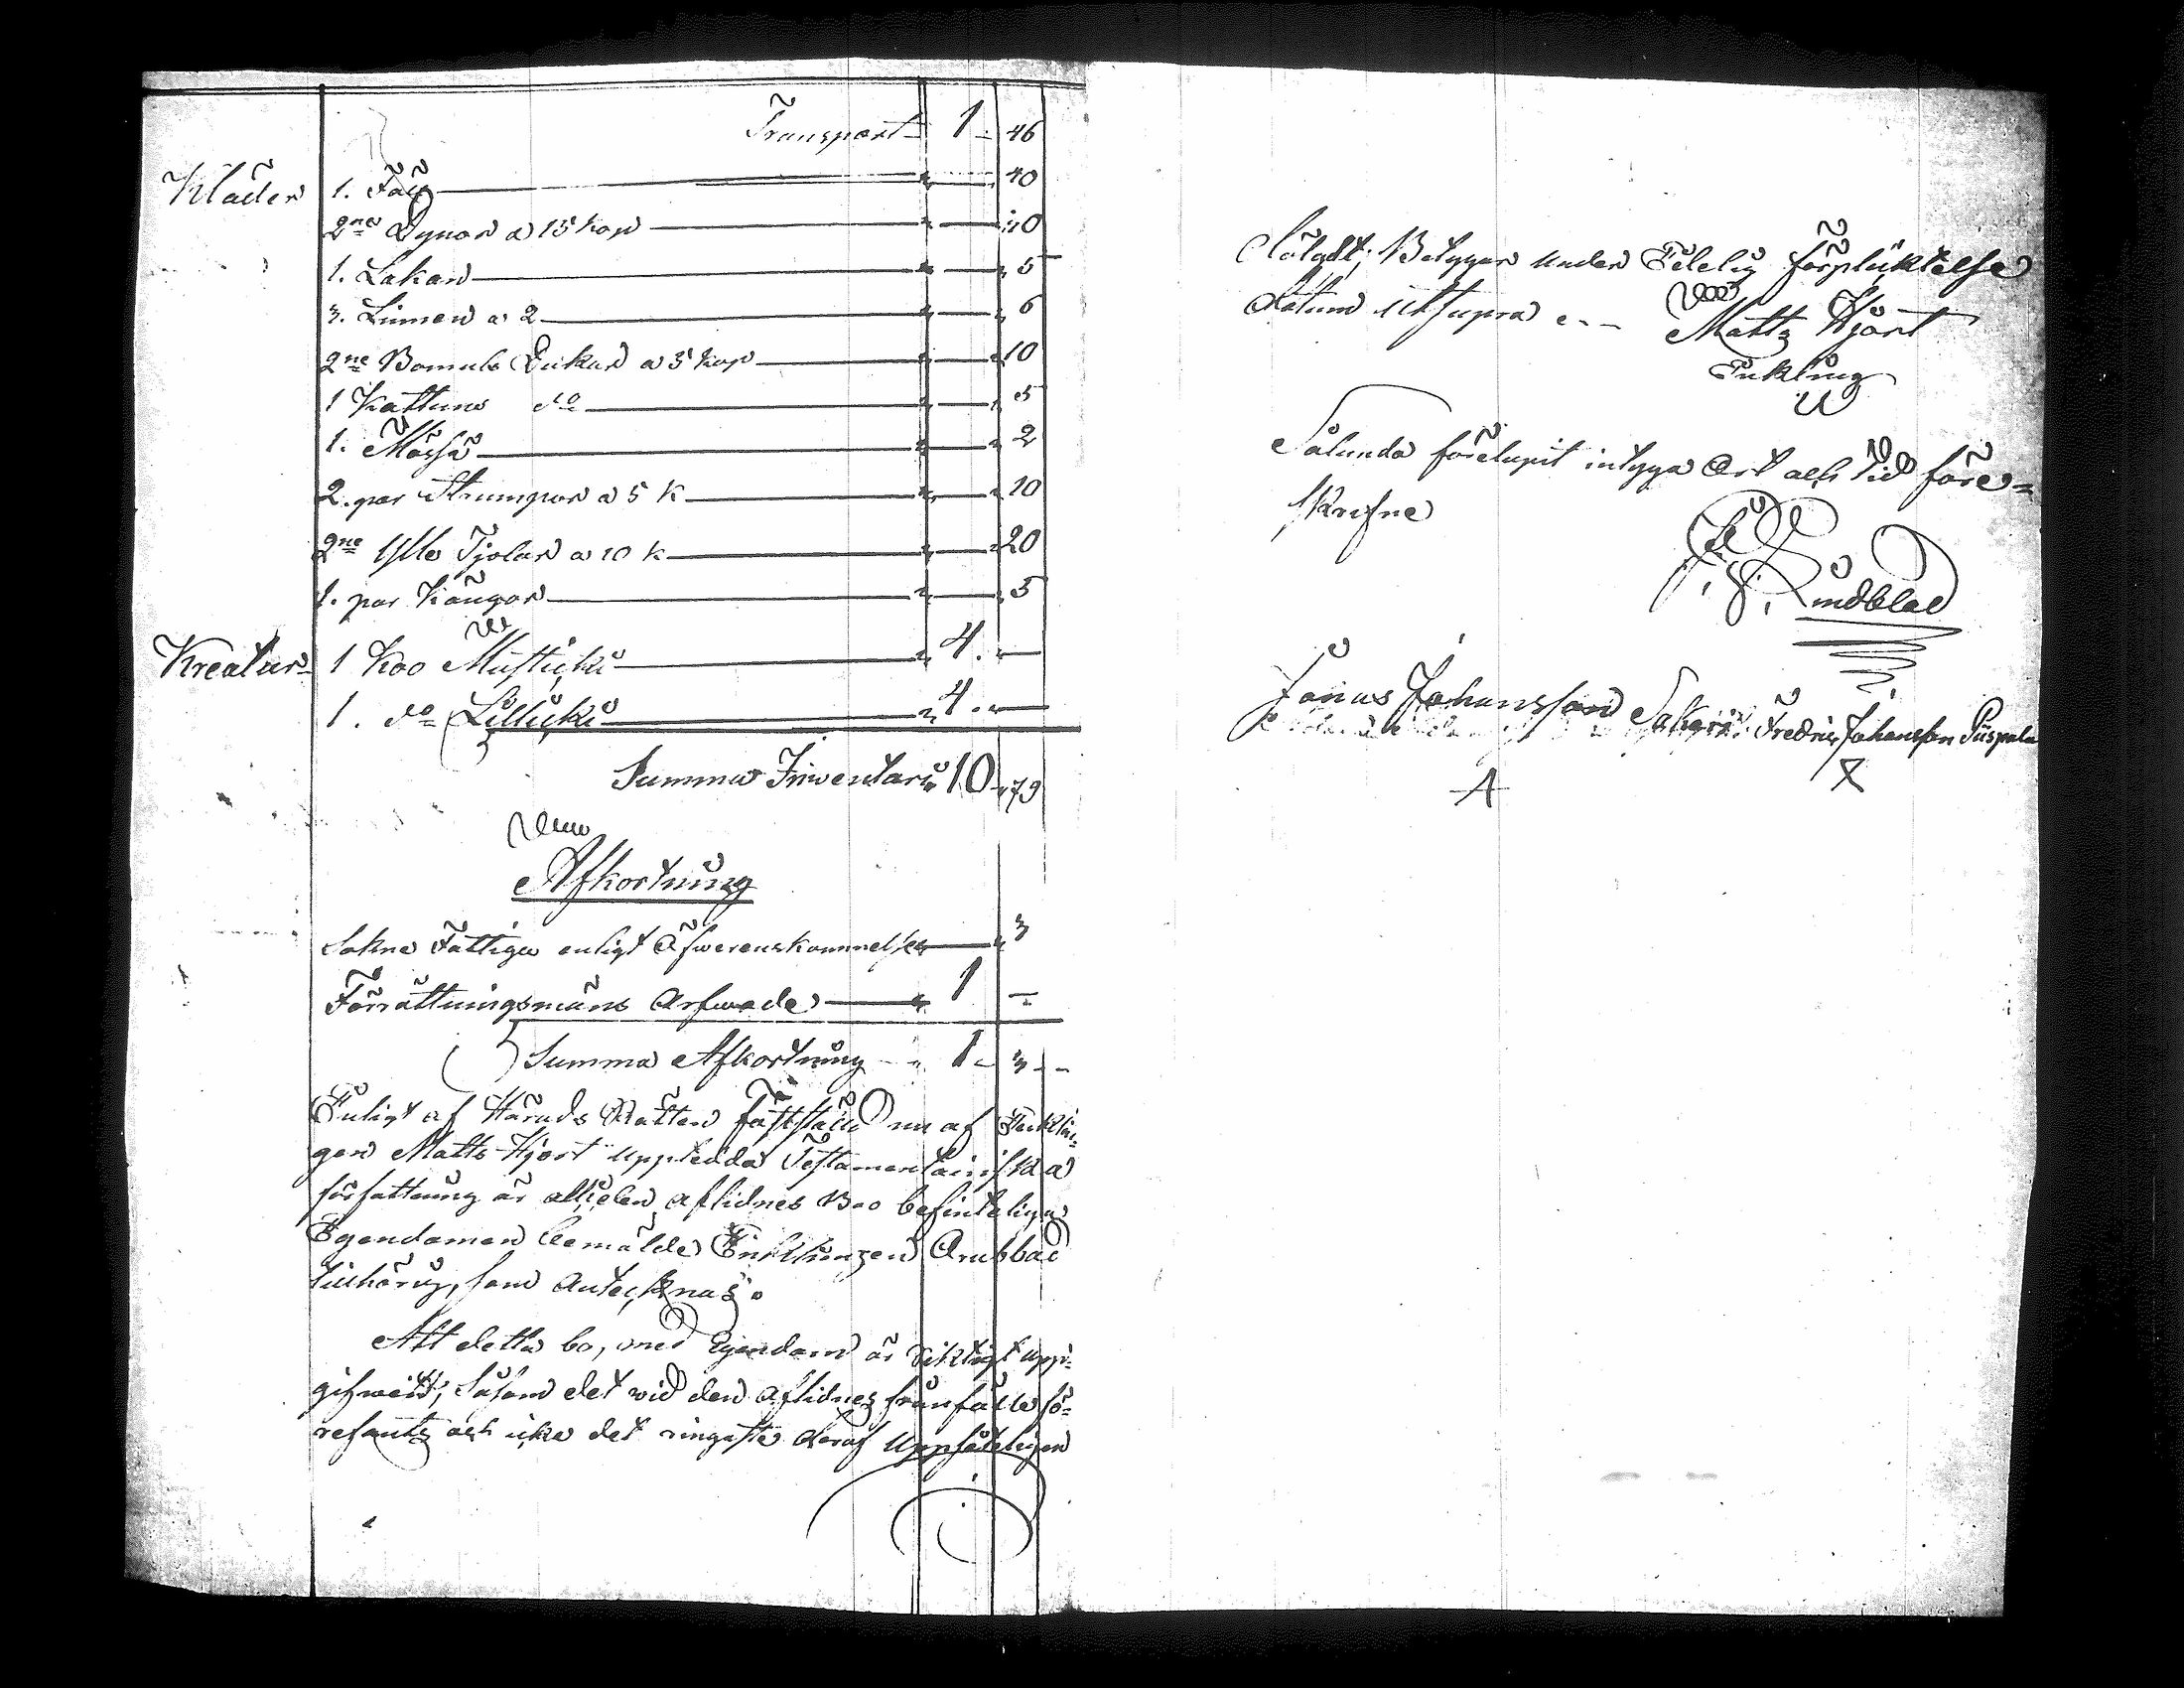 Transport 1 46
Kläder 1. Fäll 40
2ne Dynor a 15 kop 30
1. Lakan 5
3. Linnen a 2 6
2ne Bomuls Dukar a 5 kop 10
1 Kattuns do 5
1. Mössa 2
2. par Strumpor a 5 k 10
2ne Ylle Tjolar a 10 k 20
1. par Kängor 5
Kreatur 1 Koo Musticki 4. —
1. do Lillicki 4. —
Summa Inventarii 10 79
Afkortning
Sokne Fattiga enligt Öfwerenskommelse 3
Förrättningsmäns Arfwode 1 —
Summa Afkortning 1 3
Enligt af Härads Rätten fastställd nu af Enklin-
gen Matts Hjort uppledda Testamentariska
författning är all i den aflidnes Boo befinteliga
Egendomen bemälde Enklingen Orubbad
tillhörig, som antecknas.
Att detta bo, med Egendom är riktigt upp-
gifweit, Såsom det wid den aflidnes frånfälle fö-
refants och icke det ringaste deraf Uppsåteligen
dölgdt; Betygar under Edelig förplicktelse
datum utsupra
Matts Hjort
Enkling
Sålunda förelupit intyga Ort och tid före-
skrifne
Lindblad
Jonas Johansson Sakeri Fredric Johansson Piispala
A X